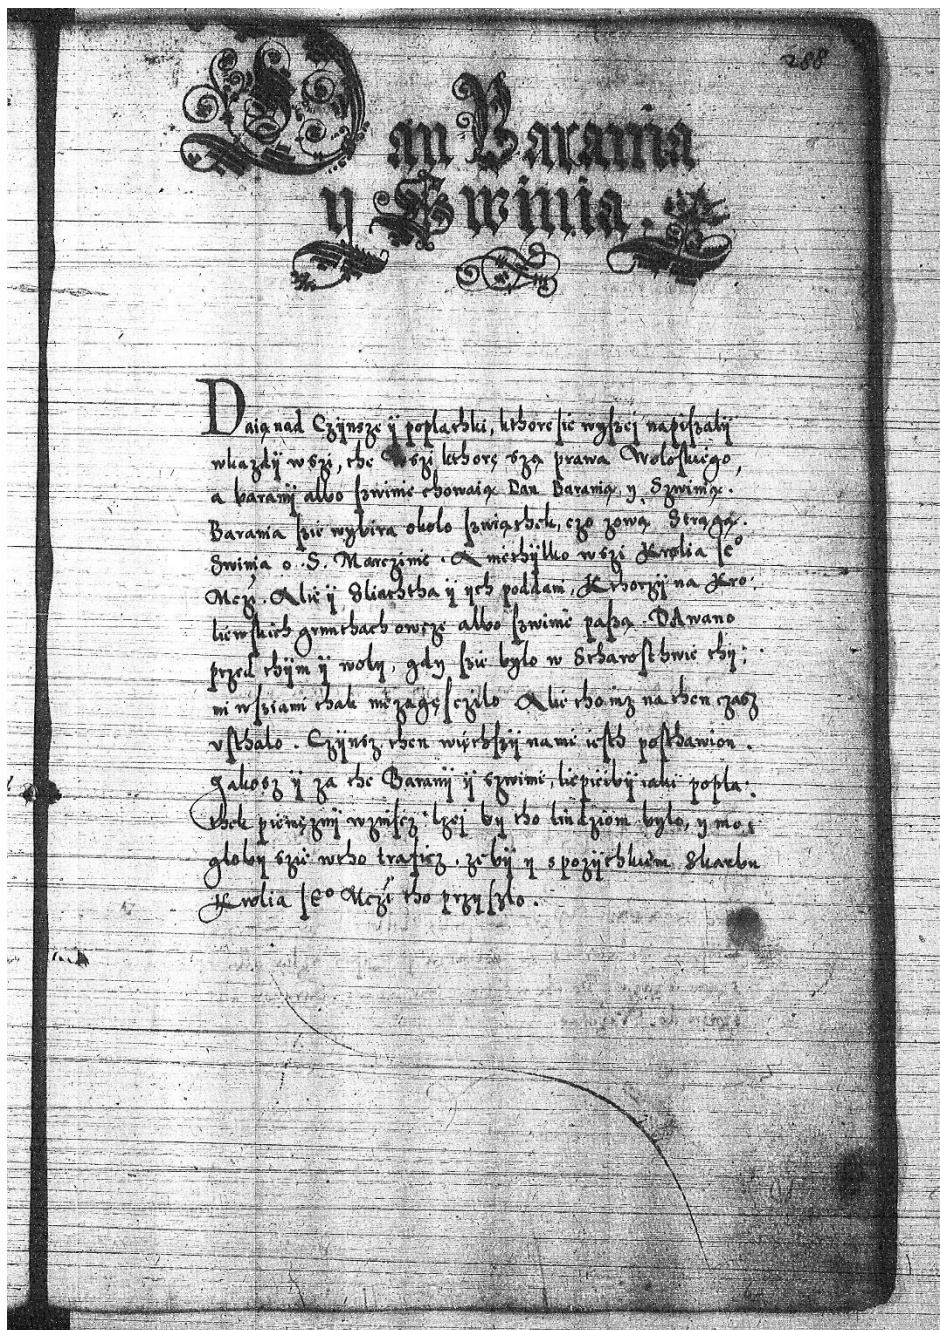 288
Dan Barania
y Swinia.
Daią nad Czÿnsze ÿ poplathki, kthore sie wyszej napiszalÿ
wkazdÿ wszi, the wszi kthorę szą prawa Woloskiego,
a baranÿ albo szwinie chowaią Dan Baranią y Szwinią.
Barania szie wybira okolo szwiąthek, czo zową Strągą.
Swinia o. S. Marczinie. A niethÿlko wszi Krolia Je°
Mczi. Alie ÿ Sliachtha ÿ ych poddani, Kthorzÿ na Kro:
liewskich grunthach owcze albo szwinie paszą. Dawano
przed thÿm ÿ wolÿ, gdy szie bylo w Stharosthwie thÿ:
mi wsziami thak niezagęsczilo Alie tho iuz na then czasz
vsthalo. Czÿnsz then więthszÿ nami iesth posthawion.
Jakosz ÿ za the Baranÿ ÿ szwinie, liepieibÿ iaki popla:
thek pienięznÿ wzniescz lzej by tho liudziom bylo, y mo:
globy szie wtho traficz. zebÿ y spozythkiem Skarbu
Krolia Je° Mczi tho przyszlo.